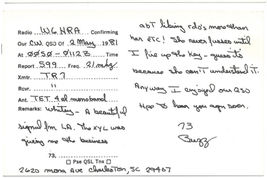 Radio W6NRA Confirming
Our CW QSO Of 2 May 1981
At 0050-0112 Time
Report 599 Freq. 21 mhz
Xmtr. TR7
Rcvr. "
Ant. TET 4el monoband
Remarks: Whitey - A beautiful
signal fm LA. The XYL was
giving me the business
73,
□ Pse QSL Tnx □
2620 Moon Ave Charleston, SC 29407
abt liking cdo's more than
her etc! She never fusses until
I fire up the key - guess its
because she can't understand it.
Anyway I enjoyed our QSO
Hope to hear you agn soon.
73
Buzz